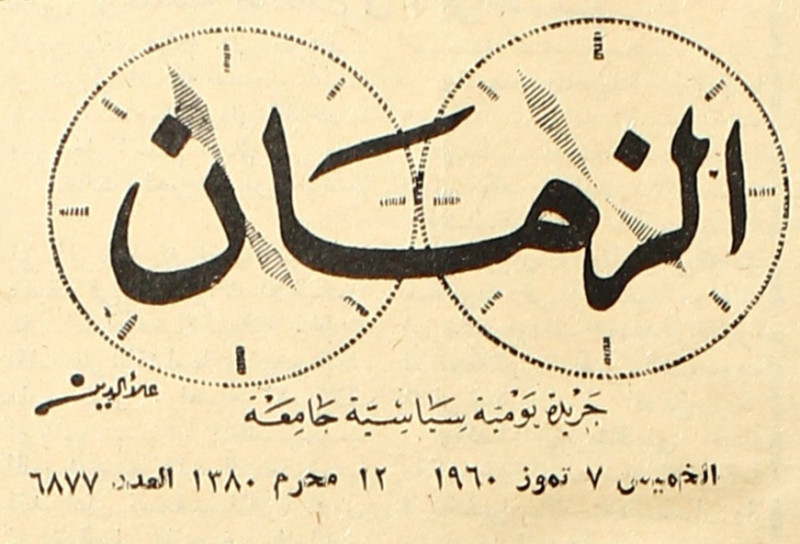 الزمان
علاء الدين
جريدة يومية سياسية جامعة
الخميس ٧ تموز ١٩٦٠ ١٢ محرم ١٣٨٠ العدد ٦٨٧٧